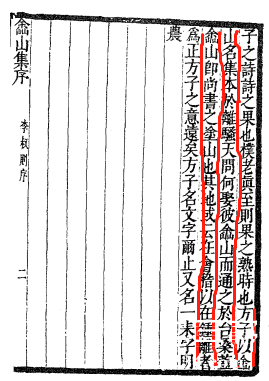 子之詩詩之果也樸老真至則果之熟時也方子以嵞
山名集本於離騷天問何娶彼嵞山而通之於台桑註
嵞山即尚書之塗山也其地或云在會稽以在鍾離者
為正方子之意遠矣方子名文字爾止又名一耒字明
農
嵞山集序
李楨則序
二